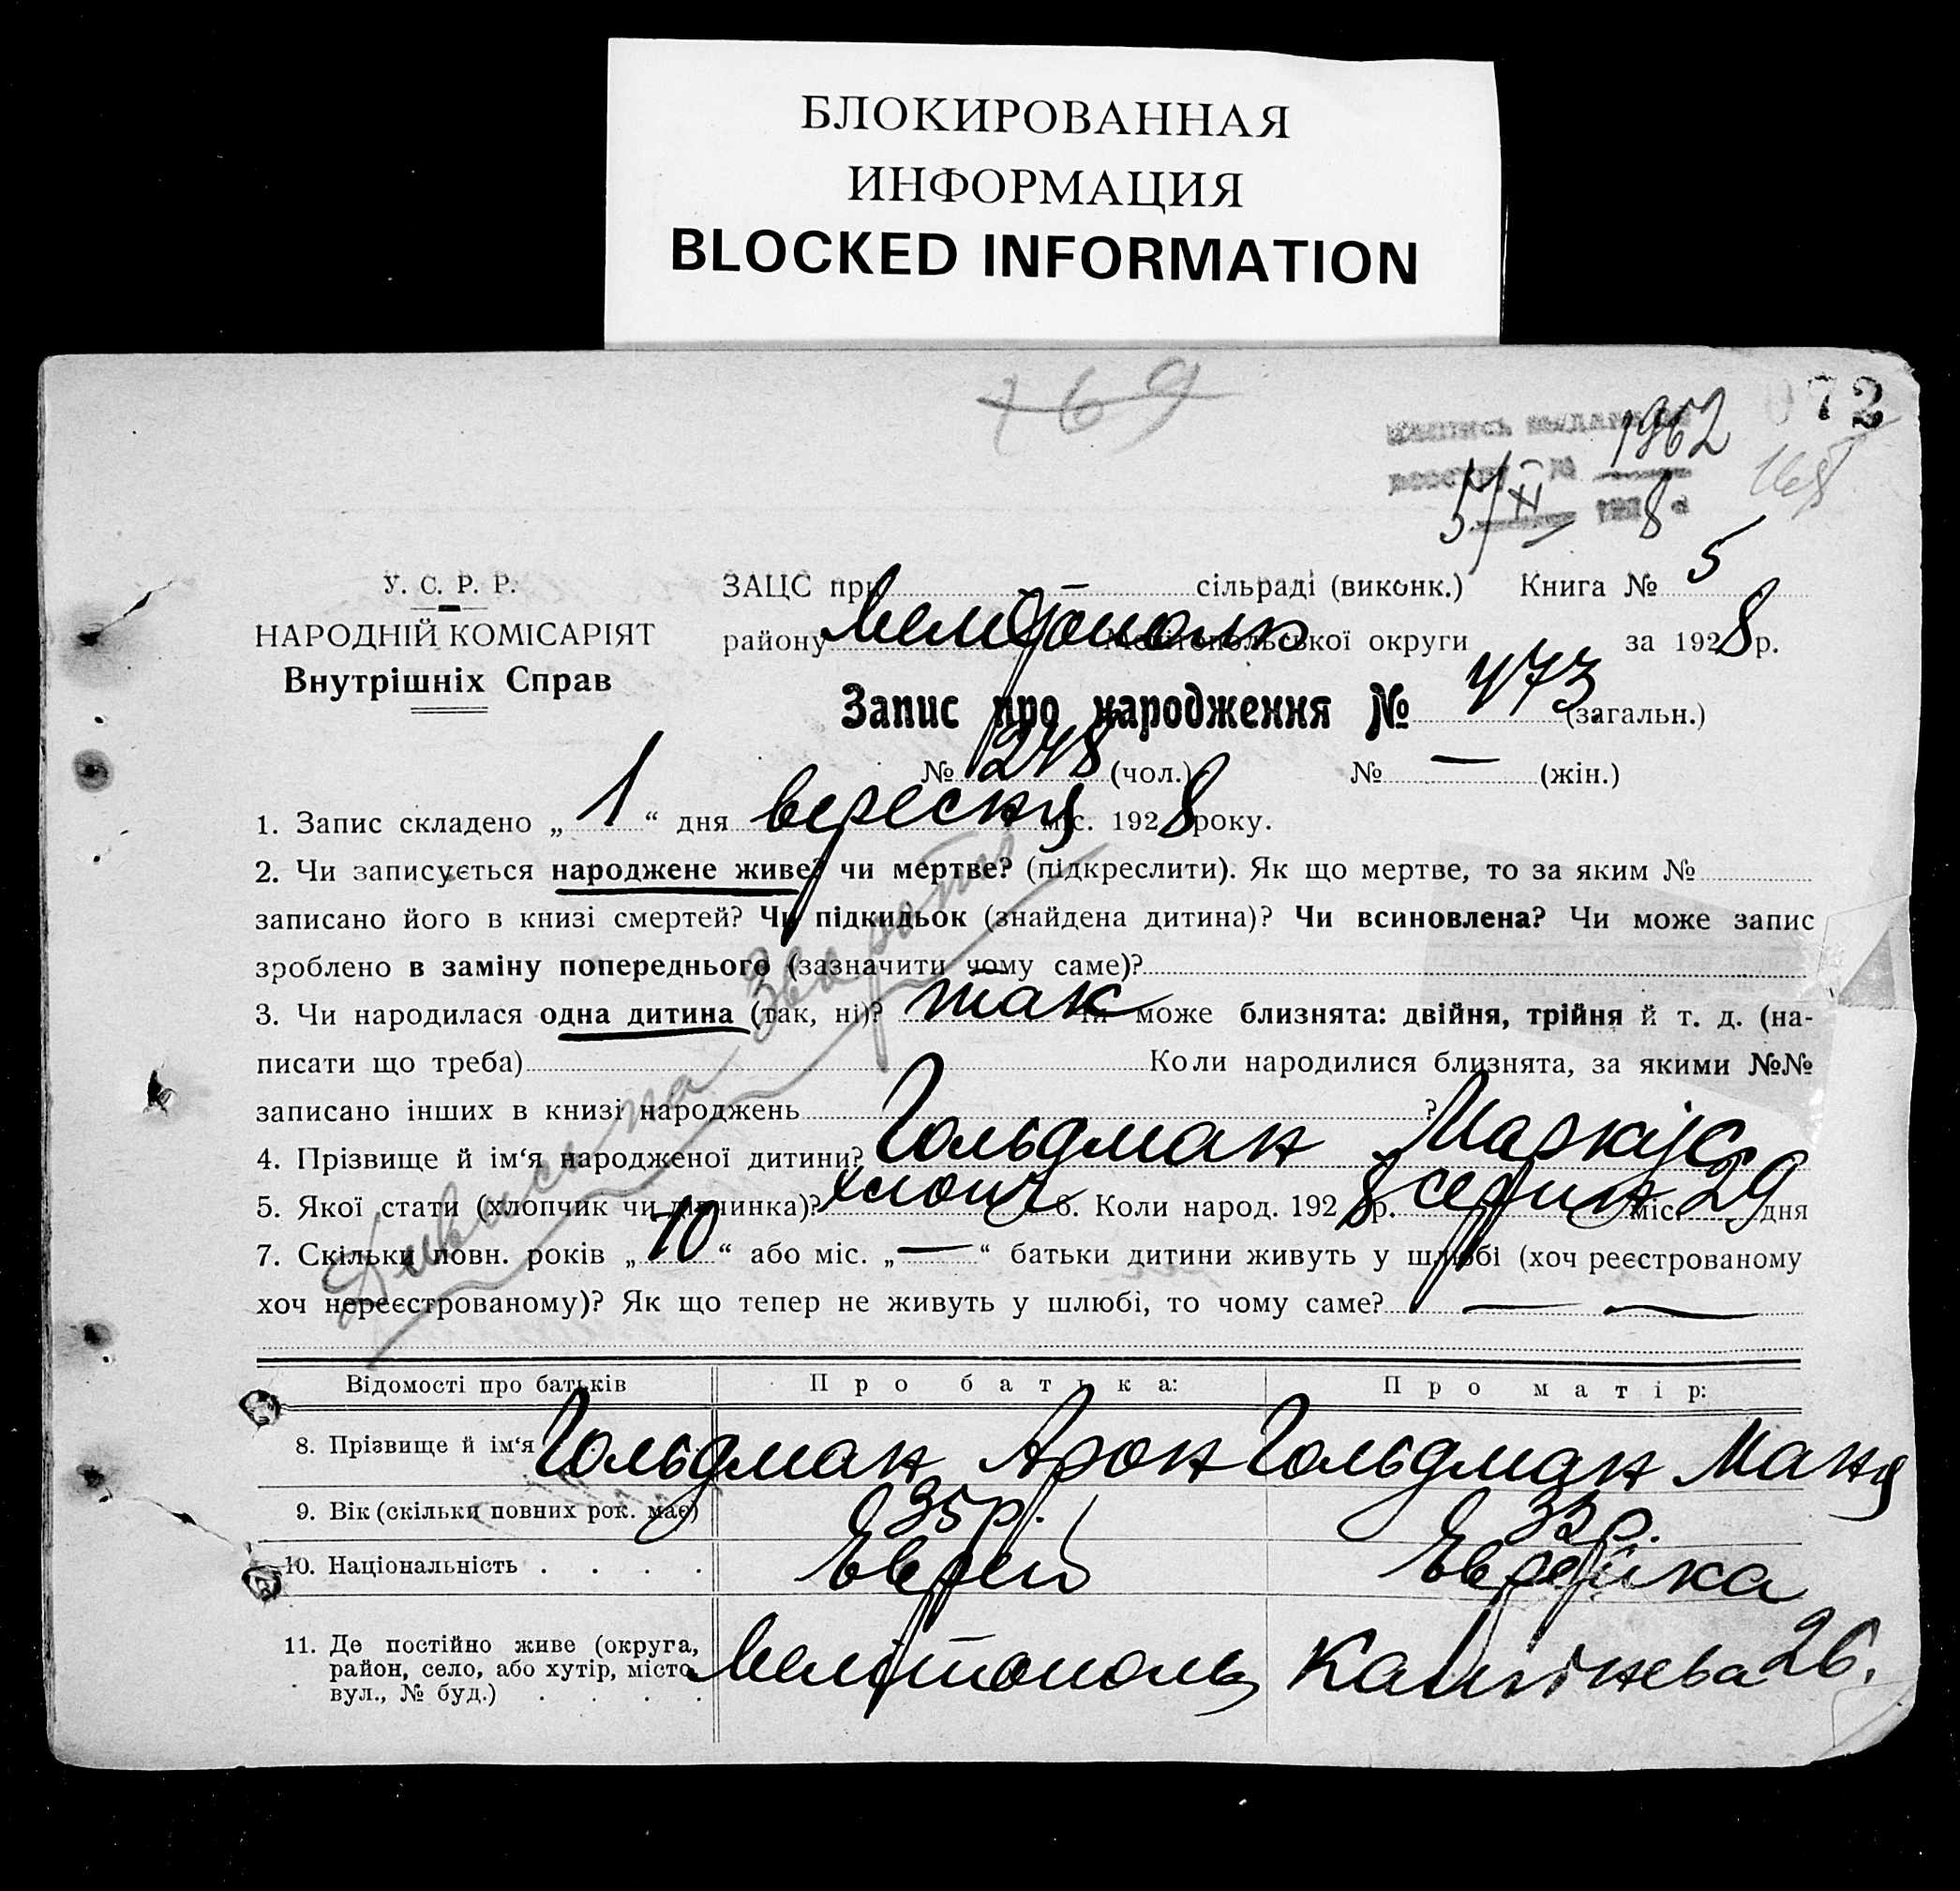 БЛОКИРОВАННАЯ
ИНФОРМАЦИЯ
BLOCKED INFORMATION
169
072
1962
5/XI 8
У. С. Р. Р.
НАРОДНІЙ КОМІСАРІЯТ
Внутрішніх Справ
ЗАЦС при — сільраді (виконк.) Книга № 5
району Мелітополь Мелітопольської округи за 1928 р.
Запис про народження № 473 (загальн.)
№ 248 (чол.) № — (жін.)
1. Запис складено „ 1 “ дня вересня міс. 1928 року.
2. Чи записується народжене живе? чи мертве? (підкреслити). Як що мертве, то за яким №
записано його в книзі смертей? Чи підкидьок (знайдена дитина)? Чи всиновлена? Чи може запис
зроблено в заміну попереднього (зазначити чому саме)?
3. Чи народилася одна дитина (так, ні)? так Чи може близнята: двійня, трійня й т. д. (на-
писати що треба) Коли народилися близнята, за якими №№
записано інших в книзі народжень ?
4. Прізвище й ім‘я народженої дитини? Гольдман Маркус
5. Якої стати (хлопчик чи дівчинка)? хлопч 6. Коли народ. 1928 р. серпня міс. 29 дня
7. Скільки повн. років „ 10 “ або міс. „ — “ батьки дитини живуть у шлюбі (хоч реєстрованому
хоч нереєстрованому)? Як що тепер не живуть у шлюбі, то чому саме? — —
Дивись на звороті
Відомості про батьків Про батька: Про матір:
8. Прізвище й ім‘я Гольдман Арон Гольдман Маня
9. Вік (скільки повних рок. має) 35 р. 33 р.
10. Національність . . . . Еврей Еврейка
11. Де постійно живе (округа,
район, село, або хутір, місто,
вул., № буд.) . . . . Мелітополь 26.